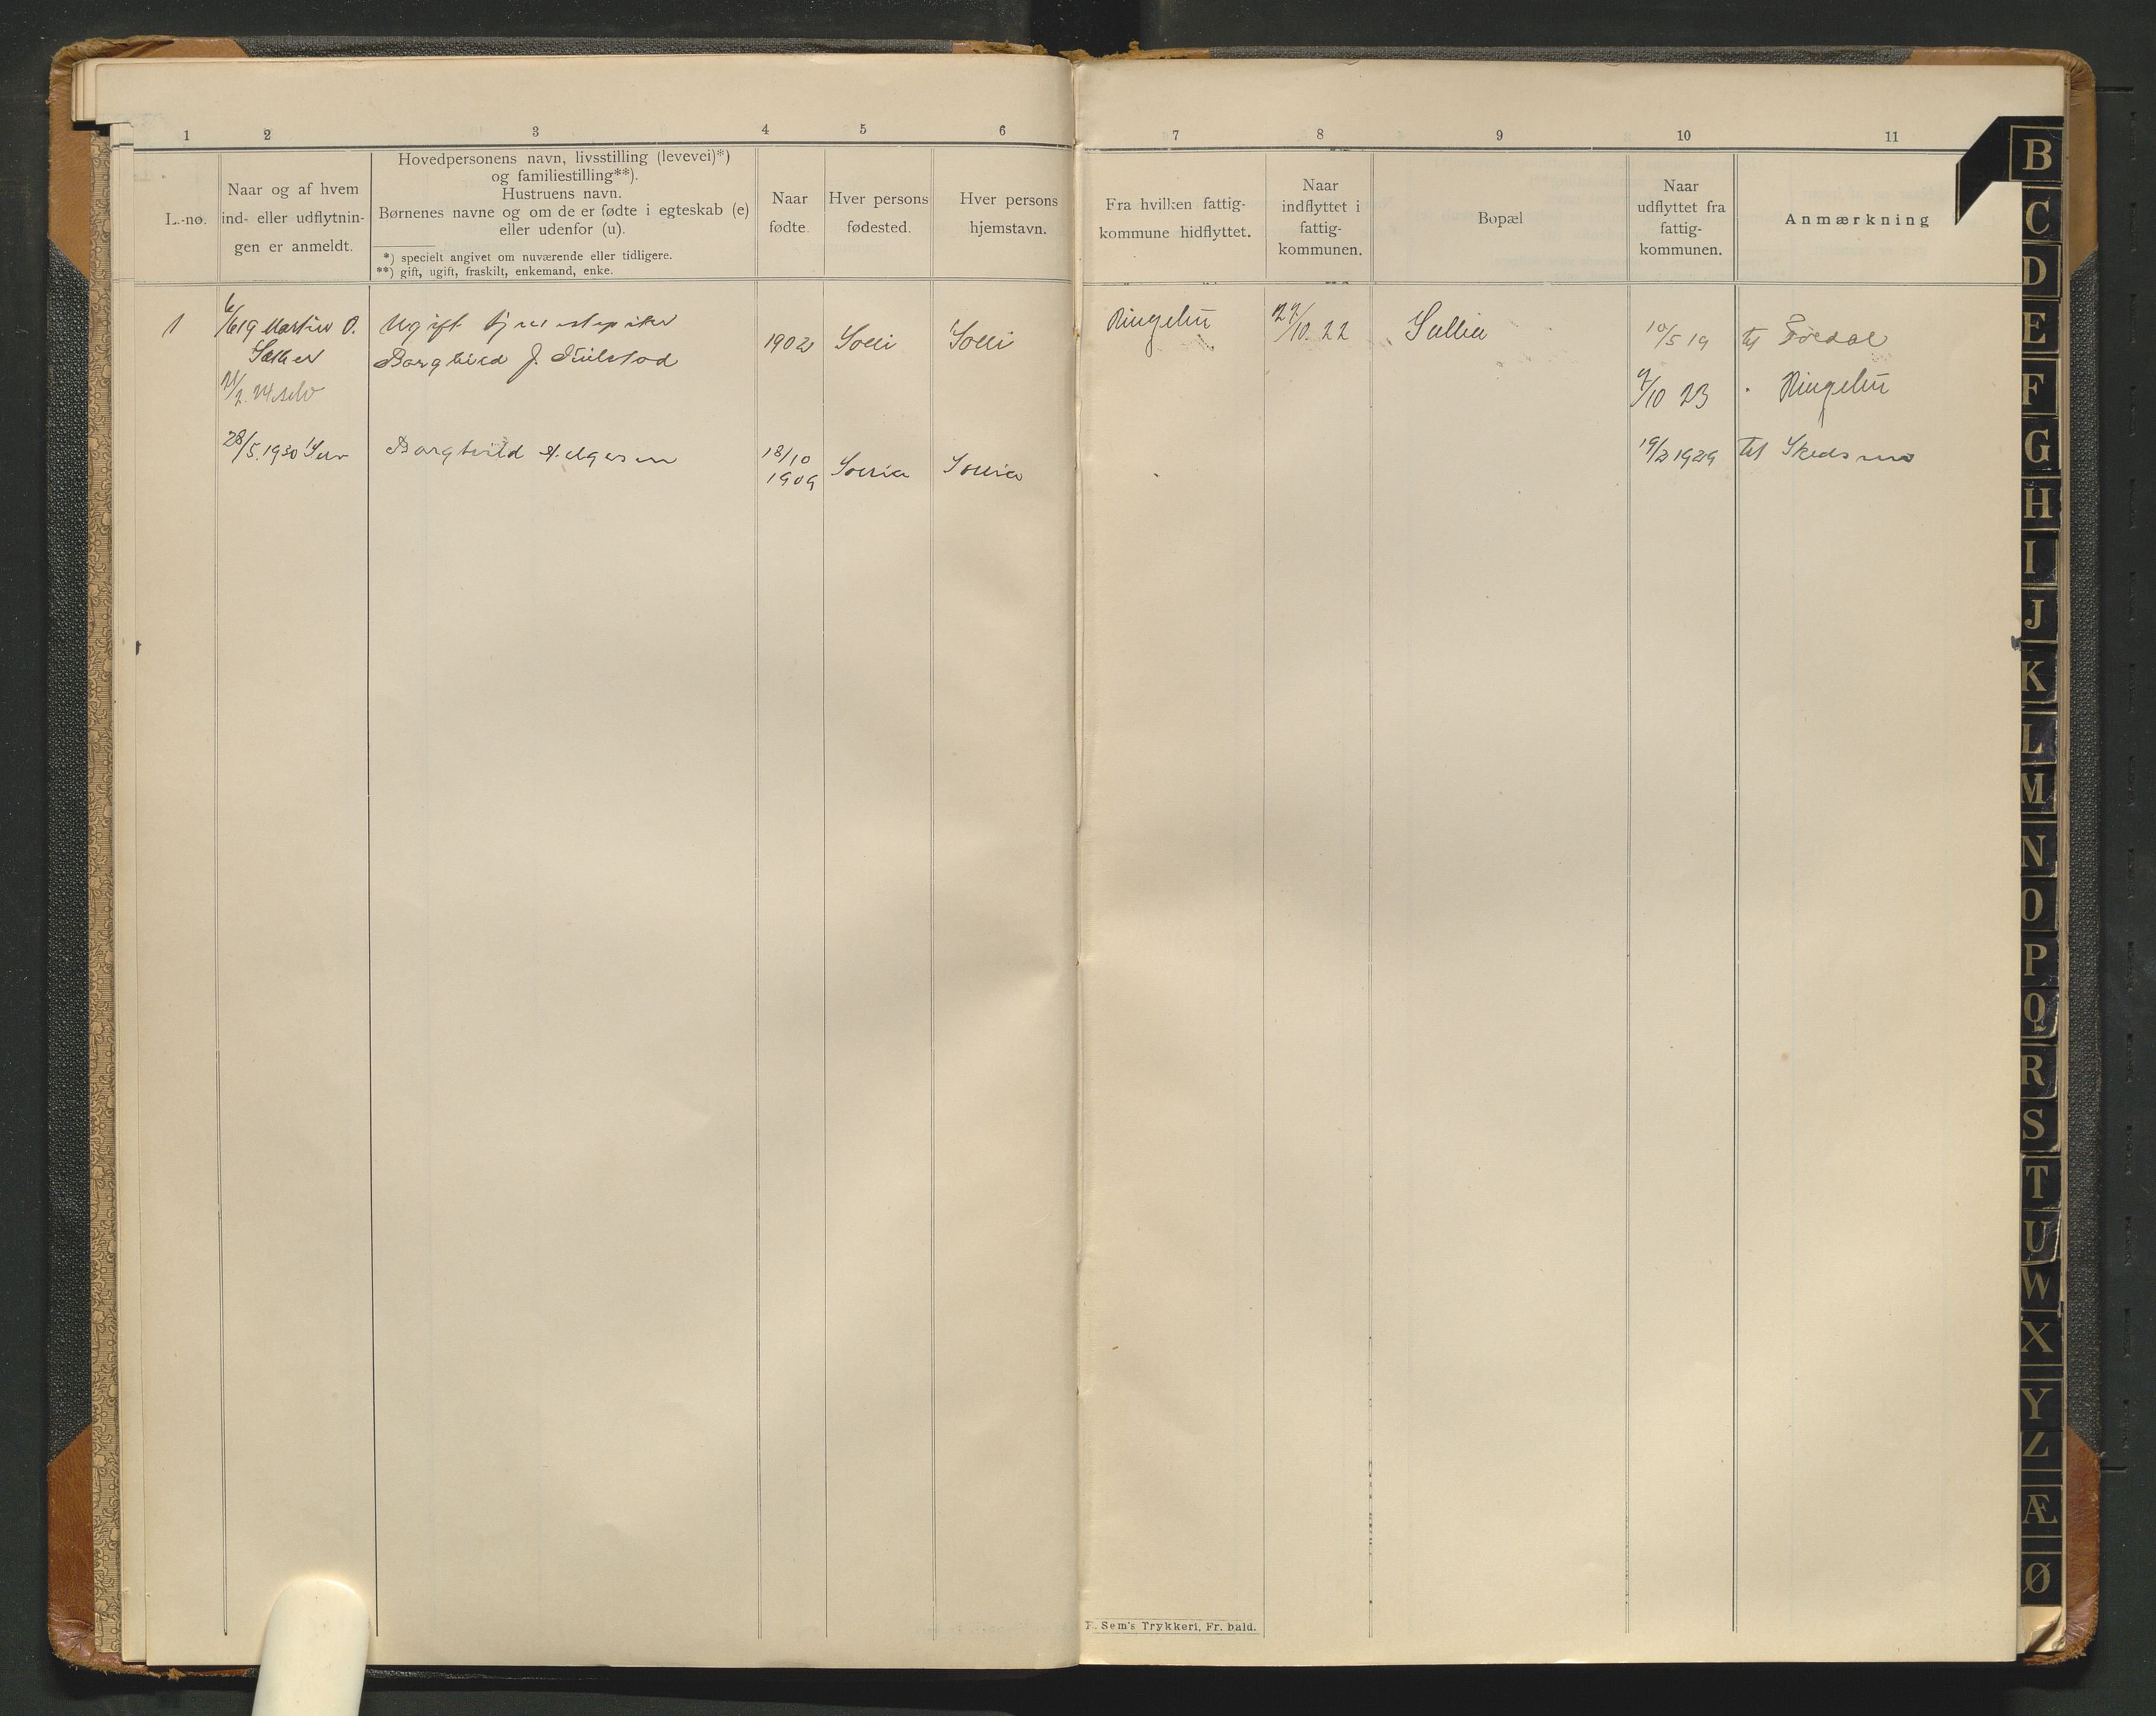 1 2 3 4 5 6 7 8 9 10 11
L.-no.
Naar og af hvem
ind- eller udflytnin-
gen er anmeldt.
Hovedpersonens navn, livsstilling (levevei)*)
og familiestilling**).
Hustruens navn.
Børnenes navne og om de er fødte i egteskab (e)
eller udenfor (u).
*) specielt angivet om nuværende eller tidligere.
**) gift, ugift, fraskilt, enkemand, enke.
Naar
fødte.
Hver persons
fødested.
Hver persons
hjemstavn.
Fra hvilken fattig-
kommune hidflyttet.
Naar
indflyttet i
fattig-
kommunen.
Bopæl
Naar
udflyttet fra
fattig-
kommunen.
Anmærkning
1
6/6 19 Martin O.
Sæther
21/2. 24 selv
Ugift tjenestepike
Borghild J.
1902
Solli
Solli
Ringebu
27/10. 22
Sollia
10/5 19
til Foldal
7/10 23
" Ringebu
28/5. 1930
Borghild Helgesen
18/10
1909
Sollia
Sollia
19/2 1929
til Skedsmo
F. Sem's Trykkeri, Fr. hald.
B
C
D
E
F
G
H
I
J
K
L
M
N
O
P
Q
R
S
T
U
W
X
Y
Z
Æ
Ø